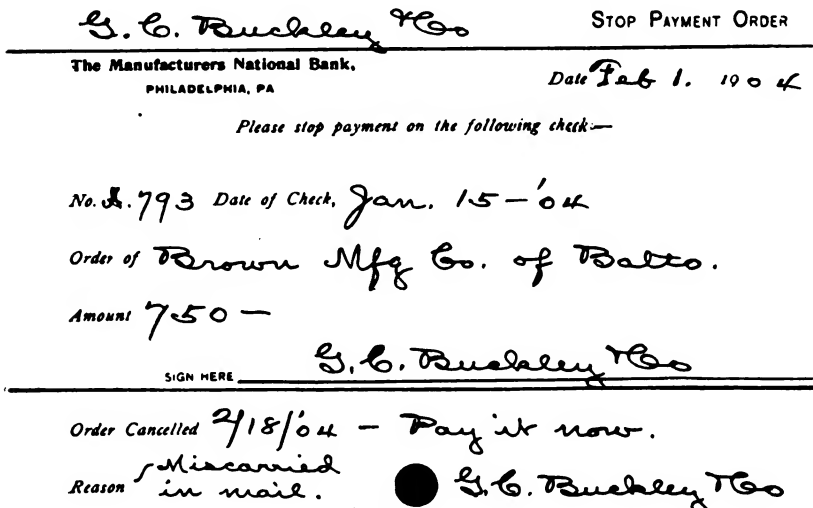 G. C. Buckley & Co STOP PAYMENT ORDER
The Manufacturers National Bank,
PHILADELPHIA, PA
Date Feb 1. 1904
Please stop payment on the following check:—
No. A. 793 Date of Check, Jan. 15-'04
Order of Brown Mfg Co. of Balto.
Amount 750—
SIGN HERE G. C. Buckley & Co
Order Cancelled 2/18/'04 - Pay it now.
Reason Miscarried
in mail. G. C. Buckley & Co